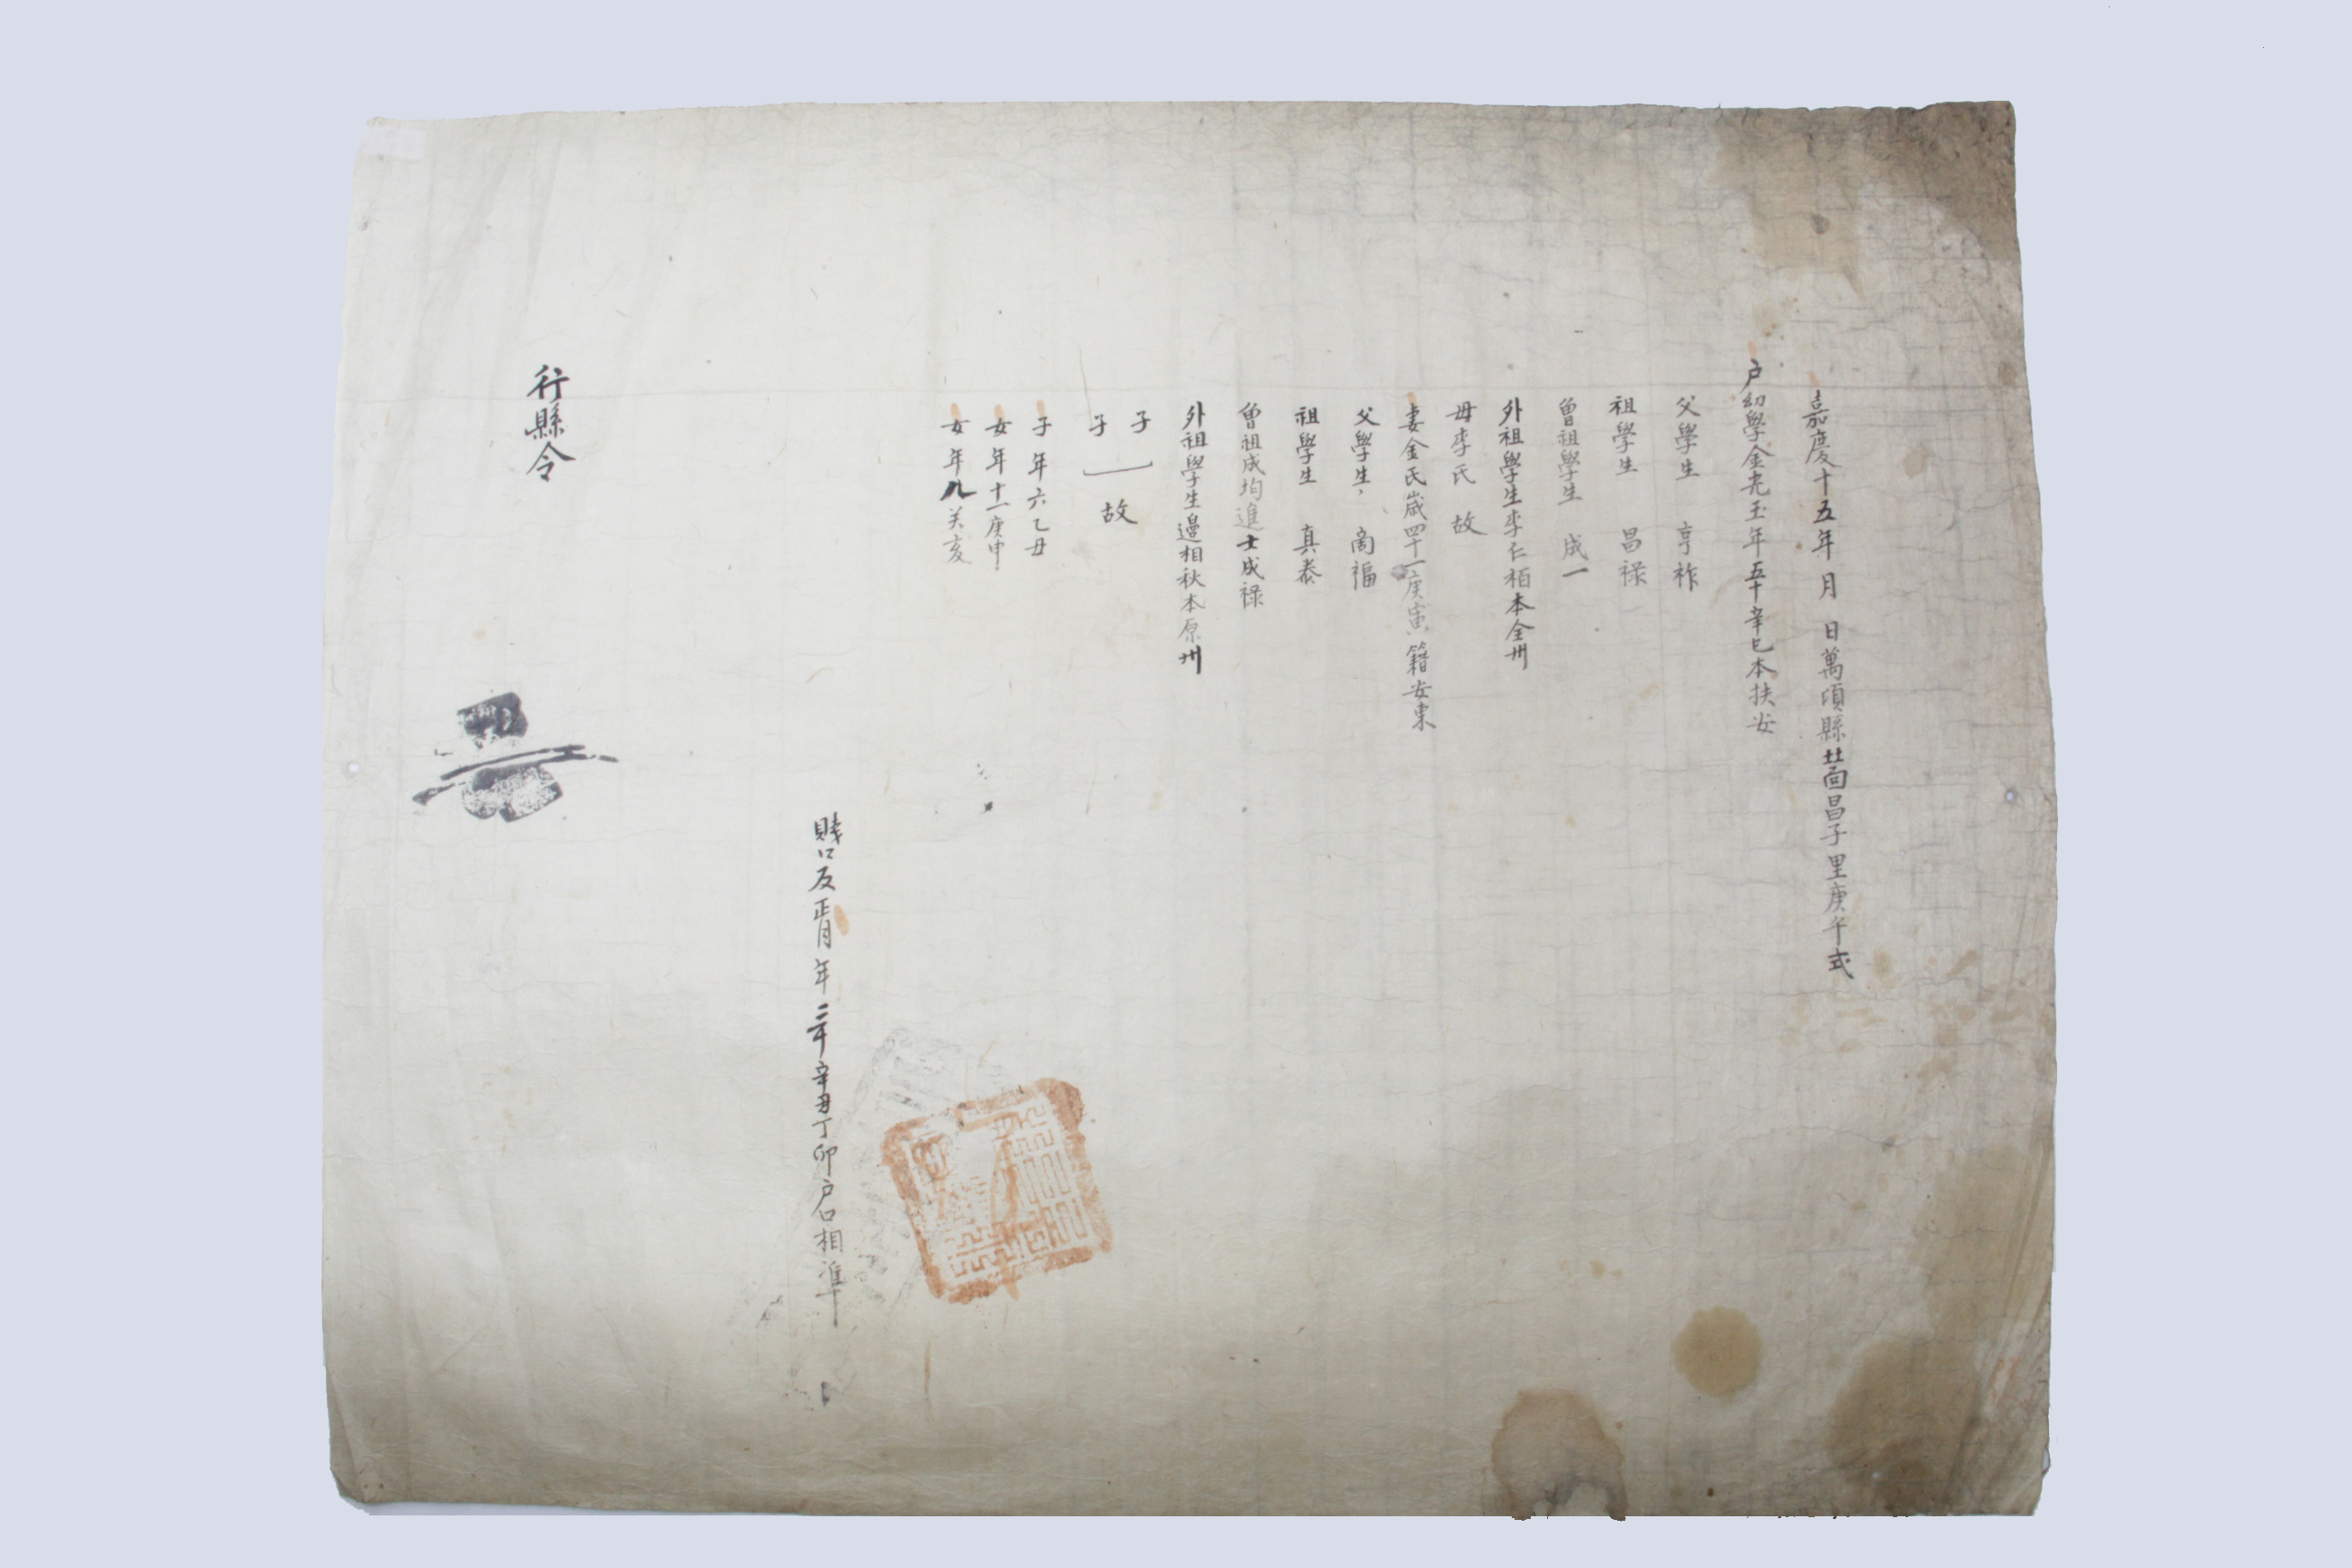 嘉慶十五年 月 日萬頃縣北面昌子里庚午式
户幼學金光玉年五十辛巳本扶安
父學生 亨祚
祖學生 昌祿
曾祖學生 成一
外祖學生李仁栢本全州
母李氏 故
妻金氏歲四十一庚寅籍安東
父學生 尚福
祖學生 真泰
曾祖成均進士成祿
外祖學生邊相秋本原州
子
子 故
子年六乙丑
女年十一庚申
女年八癸亥
賤口 正月年 辛丑丁卯户口相準
行縣令